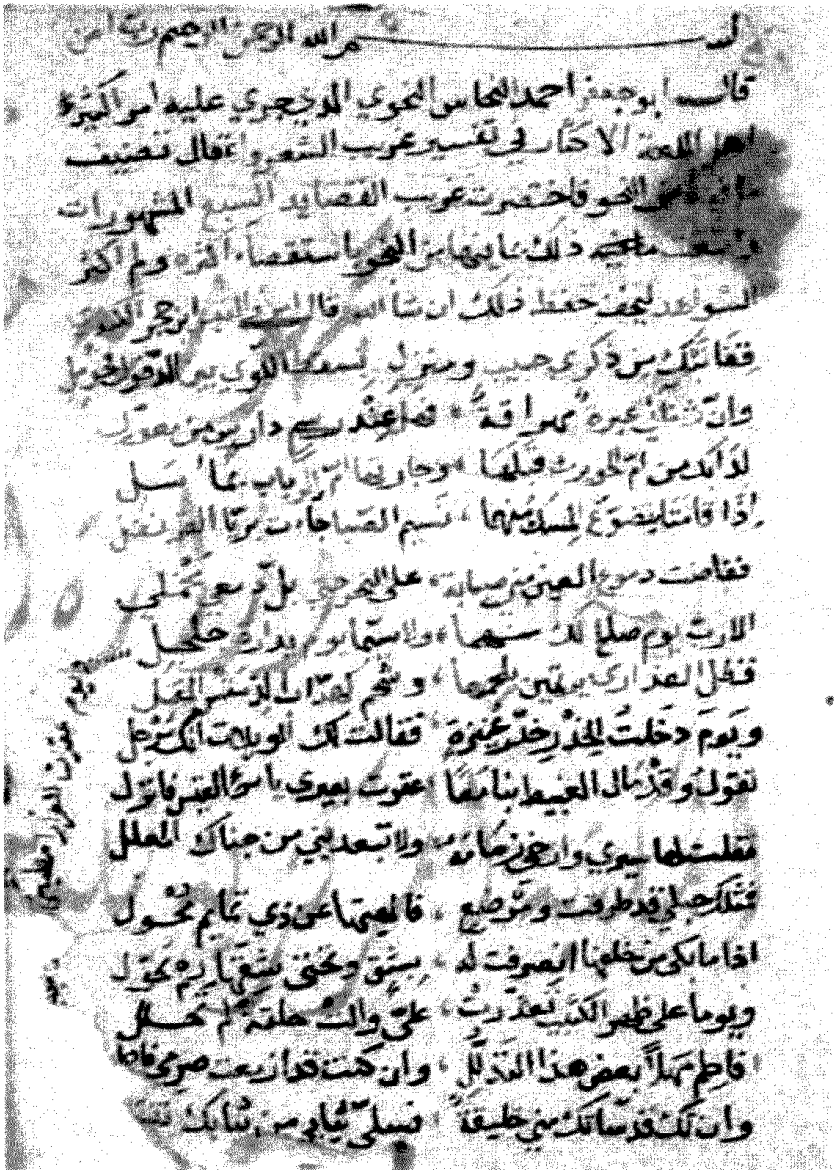 بسم الله الرحمن الرحيم رب اعن
قال ابو جعفر احمد النحاس النحوي الذي جري عليه امر اكثر
اهل اللغة الاكثار في تفسير غريب الشعر واغفال
النحو فاختصرت غريب القصايد السبع المشهورات
ذلك من النحو باستقصاء اكثره ولم اكثر
الشواهد ليخف حفظ ذلك ان شا الله قال امرؤ القيس ابن حجر
قفا نبك من ذكرى حبيب ومنزل بسقط اللوي بين الدخول فحومل
وان شفائي عبرة مهراقة فهل عند رسم دارس من معول
كدابك من ام الحويرث قبلها وجارتها ام الرباب بماسل
اذا قامتا يتضوع المسك منهما نسيم الصبا جات بريا القرنفل
ففاضت دموع العين مني صبابة على النحر حتى بل دمعي محملي
الا رب يوم صالح لك منهما ولا سيما يوم بدارة جلجل
فظل العذارى يرتمين بلحمها وشحم كهداب الدمقس المفتل
ويوم دخلت الخدر خدر عنيزة فقالت لك الويلات انك مرجلي
تقول وقد مال الغبيط بنا معا عقرت بعيري يا امرأ القيس فانزل
فقلت لها سيري وارخي زمامه ولا تبعديني من جناك المعلل
فمثلك حبلى قد طرقت ومرضع فالهيتها عن ذي تمايم محول
اذا ما بكى من خلفها انصرفت له بشق وتحتي شقها لم يحول
ويوما على ظهر الكثيب تعذرت علي والت حلفة لم تحلل
افاطم مهلا بعض هذا التدلل وان كنت قد ازمعت صرمي فاجملي
وان تك قد ساتك مني خليقة فسلي ثيابي من ثيابك تنسل
ويوم عقرت للعذارا مطيتي